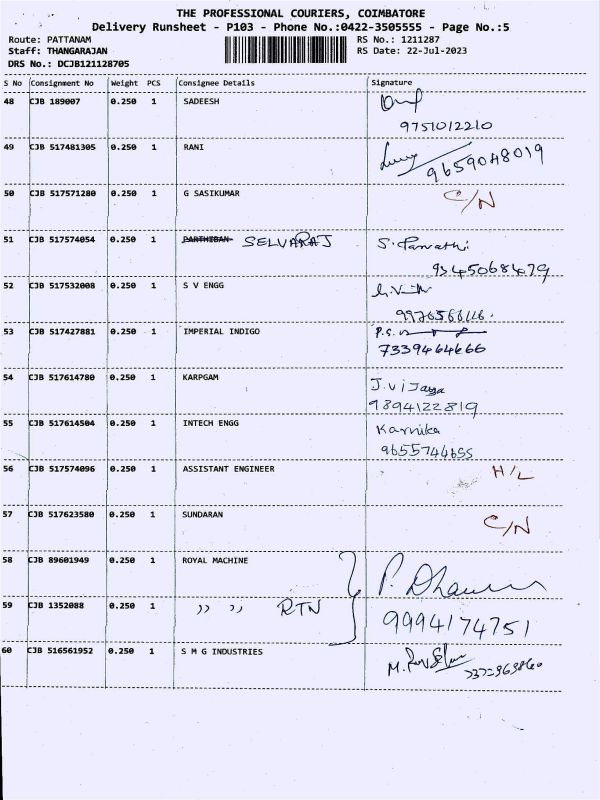 THE PROFESSIONAL COURIERS, COIMBATORE
Delivery Runsheet - P103 - Phone No.:0422-3505555 - Page No.:5
Route: PATTANAM RS No.: 1211287
Staff: THANGARAJAN RS Date: 22-Jul-2023
DRS No.: DCJB121128705
S No Consignment No Weight PCS Consignee Details Signature
48 CJB 189007 0.250 1 SADEESH
9751012210
49 CJB 517481305 0.250 1 RANI
9659048019
50 CJB 517571280 0.250 1 G SASIKUMAR C/N
51 CJB 517574054 0.250 1 PARTHIBAN SELVARAJ S. Parvathi
9345068479
52 CJB 517532008 0.250 1 S V ENGG
53 CJB 517427881 0.250 1 IMPERIAL INDIGO
7339464666
54 CJB 517614780 0.250 1 KARPGAM J. Vijaya
9894122819
55 CJB 517614504 0.250 1 INTECH ENGG Karnika
9655744655
56 CJB 517574096 0.250 1 ASSISTANT ENGINEER H/L
57 CJB 517623580 0.250 1 SUNDARAN C/N
58 CJB 89601949 0.250 1 ROYAL MACHINE
59 CJB 1352088 0.250 1 ,, ,, RTN 9994174751
60 CJB 516561952 0.250 1 S M G INDUSTRIES